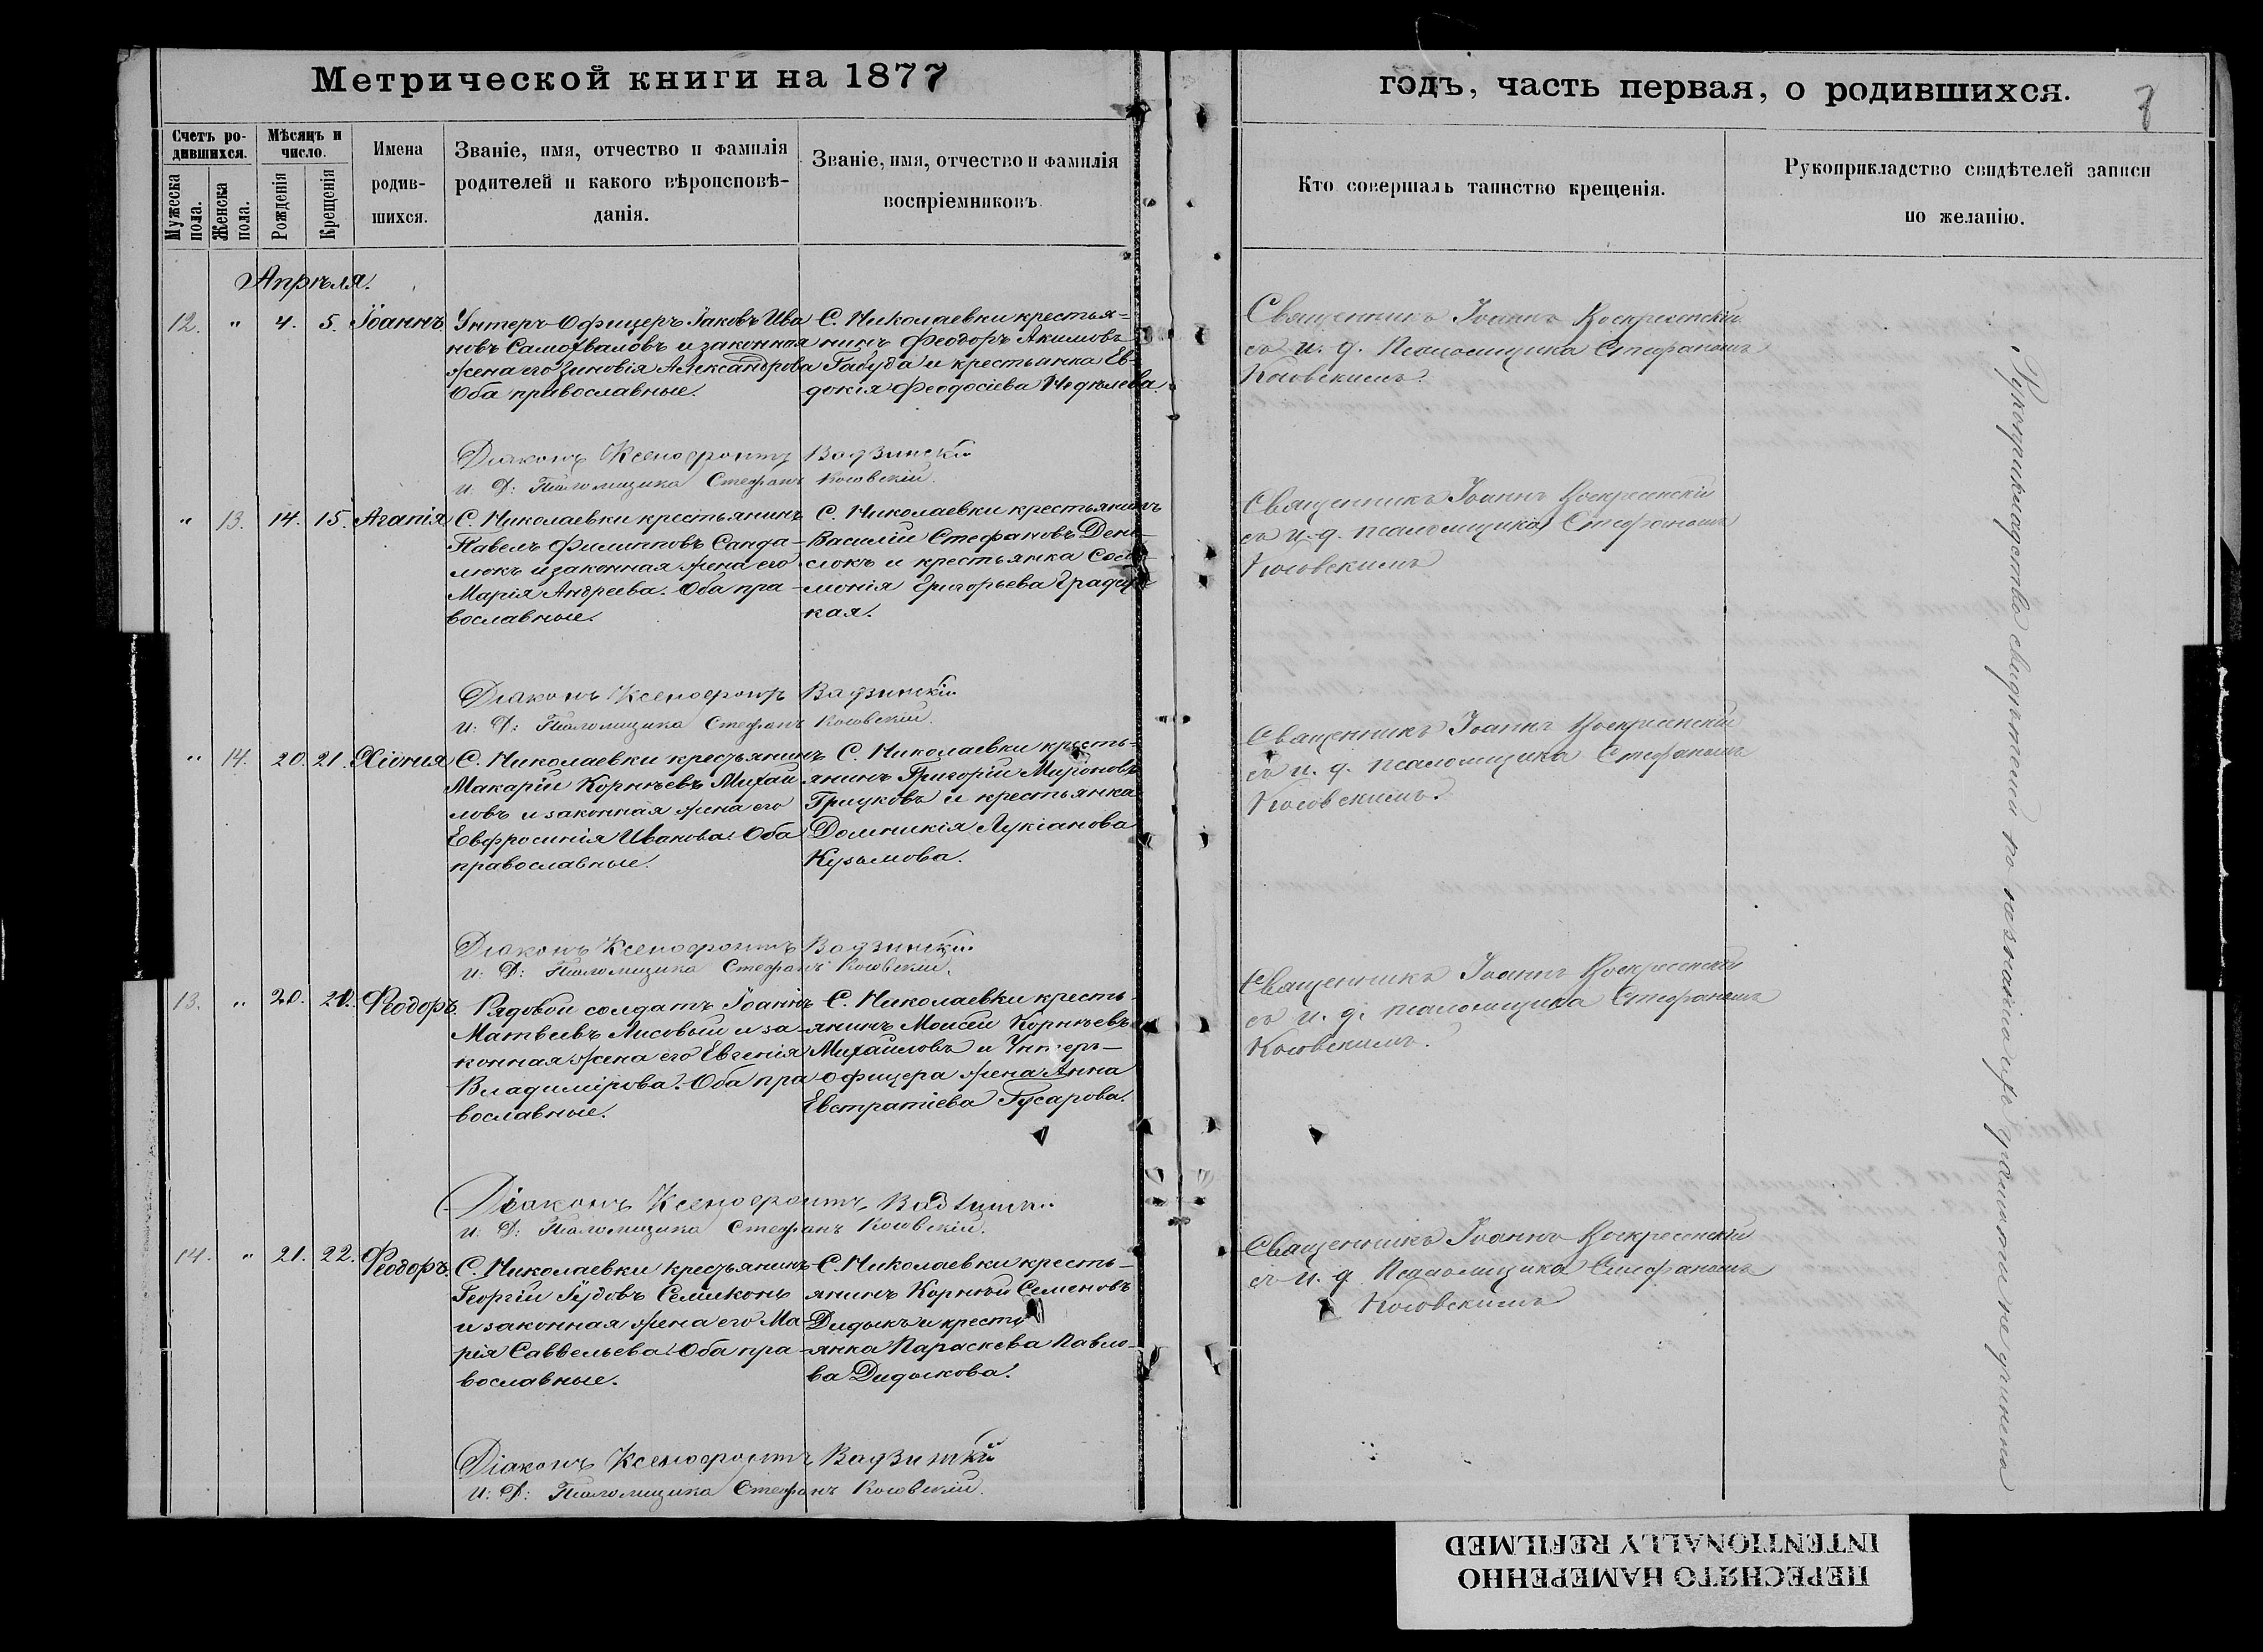 Метрической книги на 1877
годъ, часть первая, о родившихся.
Счетъ ро-
дившихся.
Мужеска
пола.
Женска
пола.
Мѣсяцъ и
число.
Рожденія
Крещенія
Имена
родив-
шихся.
Званіе, имя, отчество и фамилія
родителей и какого вѣроисповѣ-
данія.
Званіе, имя, отчество и фамилія
воспріемниковъ.
Кто совершалъ таинство крещенія.
Рукоприкладство свидѣтелей записи
по желанію.
Апрѣля.
12. " 4. 5. Іоаннъ
Унтеръ-Офицеръ Іаковъ Ива
новъ Самохваловъ и законная
жена его Зиновія Александрова
Оба православные.
С. Николаевки крестья-
нинъ Феодоръ Акимовъ
Габуда и крестьянка Ев-
докія Феодосіева Недѣлева.
Священникъ Іоаннъ Воскресенскій
съ и. д. Псаломщика Стефаномъ
Косовскимъ.
Діаконъ Ксенофонтъ Вадзинскій
и. Д: Псаломщика Стефанъ Косовскій.
" 13. 14. 15. Агапія
С. Николаевки крестьянинъ
Павелъ Филипповъ Санда-
люкъ и законная жена его
Марія Андреева. Оба пра-
вославные.
С. Николаевки крестьянинъ
Василій Стефановъ Дени-
слокъ и крестьянка
монія Григорьева
кая.
Священникъ Іоаннъ Воскресенскій
съ и. д. псаломщика Стефаномъ
Косовскимъ
Діаконъ Ксенофонтъ Вадзинскій
и: Д: Псаломщика Стефанъ Косовскій.
" 14. 20. 21. Хіонія
С. Николаевки крестьянинъ
Макарій Корнѣевъ Михай
ловъ и законная жена его
Евфросинія Иванова. Оба
православные.
С. Николаевки кресть-
янинъ Григорій Мироновъ
Грицковъ и крестьянка
Домникія Лукіанова
Кузьмова.
Священникъ Іоаннъ Воскресенскій
съ и. д. псаломщика Стефаномъ
Косовскимъ.
Діаконъ Ксенофонтъ Вадзинскій
и: Д: Псаломщика Стефанъ Косовскій.
13. " 20. 21. Феодоръ.
Рядовой солдатъ Іоаннъ
Матвѣевъ Лисовый и за-
конная жена его Евгенія
Владимірова. Оба пра
вославные.
С. Николаевки кресть-
янинъ Моисей Корнѣевъ
Михайловъ и Унтеръ-
офицера жена Анна
Евстратіева Гусарова.
Священникъ Іоаннъ Воскресенскій
съ и. д. псаломщика Стефаномъ
Косовскимъ.
Діаконъ Ксенофонтъ Вадзинскій
и: Д: Псаломщика Стефанъ Косовскій.
14. " 21. 22. Феодоръ.
С. Николаевки крестьянинъ
Георгій Іудовъ Семиконь
и законная жена его Ма-
рія Саввельева. Оба пра-
вославные.
С. Николаевки кресть-
янинъ Корній Семеновъ
Дидыкъ и кресть
янка Параскева Павло-
ва Дидыкова.
Священникъ Іоаннъ Воскресенскій
съ и. д. Псаломщика Стефаномъ
Косовскимъ
Діаконъ Ксенофонтъ Вадзинскій
и: Д: Псаломщика Стефанъ Косовскій.
Рукоприкладство свидѣтелей по незнанію грамоты не учинено
ПЕРЕСНЯТО НАМЕРЕННО
INTENTIONALLY REFILMED